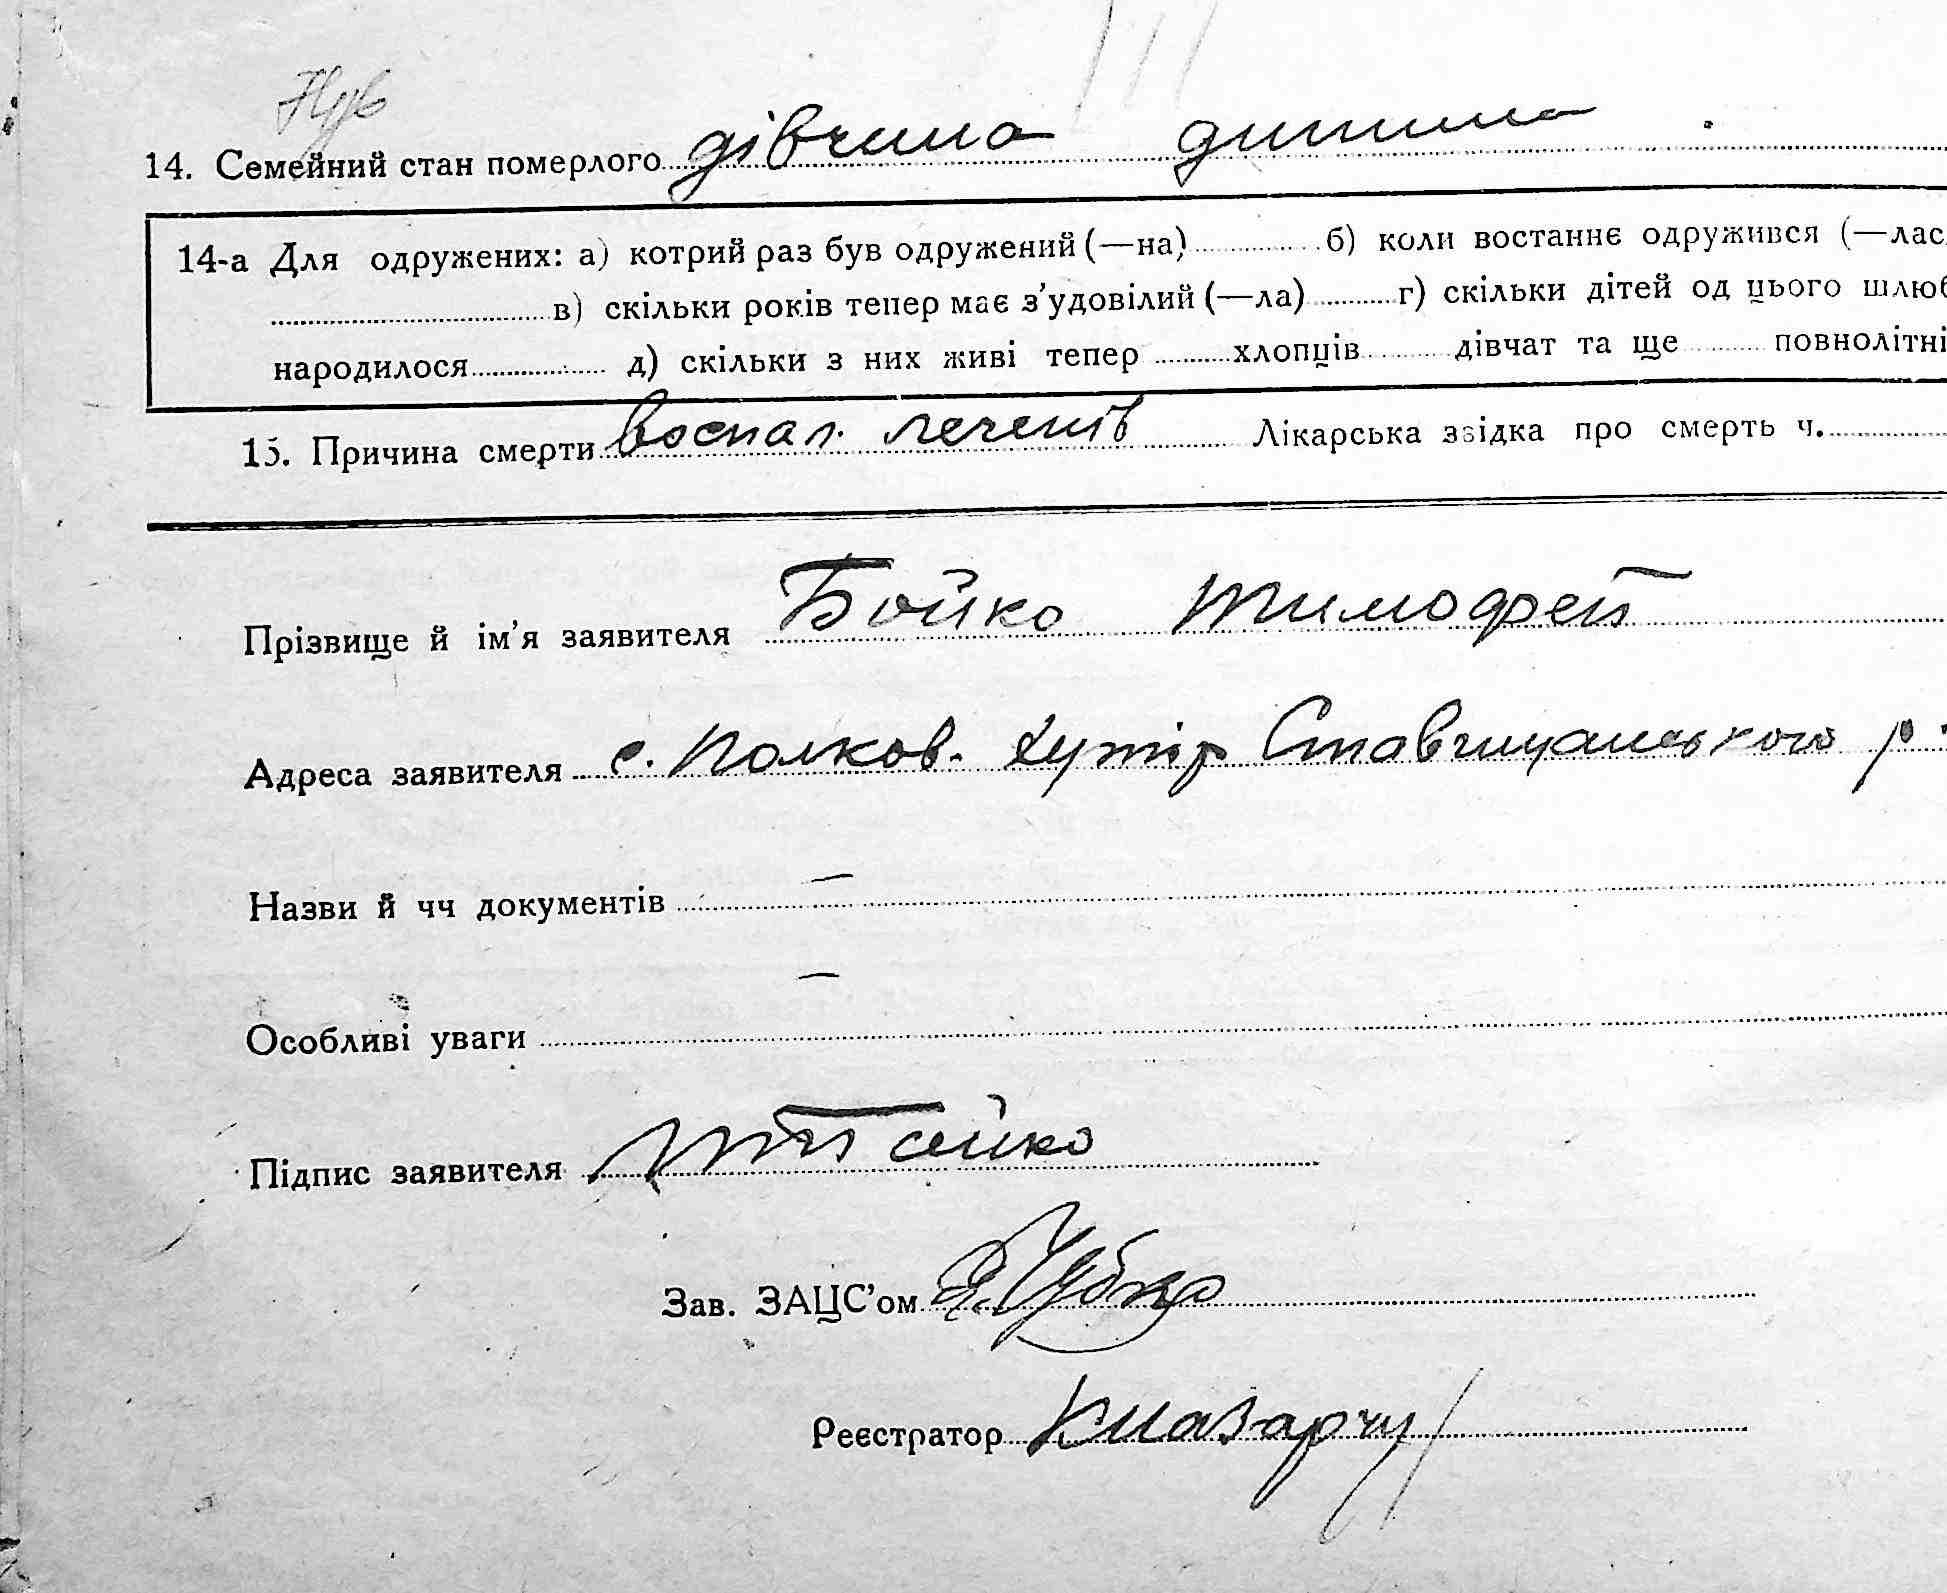 14. Семейний стан померлого дівчина дитина
14-а Для одружених: а) котрий раз був одружений (—на) б) коли востаннє одружився (—лас
в) скільки років тепер має з’удовілий (—ла) г) скільки дітей од цього шлюб
народилося д) скільки з них живі тепер хлопців дівчат та ще повнолітні
15. Причина смерти воспал. легенів Лікарська звідка про смерть ч.
Прізвище й ім’я заявителя Бойко Тимофей
Адреса заявителя с. Полков. Хутір Ставищанського р.
Назви й чч документів —
Особливі уваги —
Підпис заявителя Бойко
Зав. ЗАЦС’ом
Реєстратор